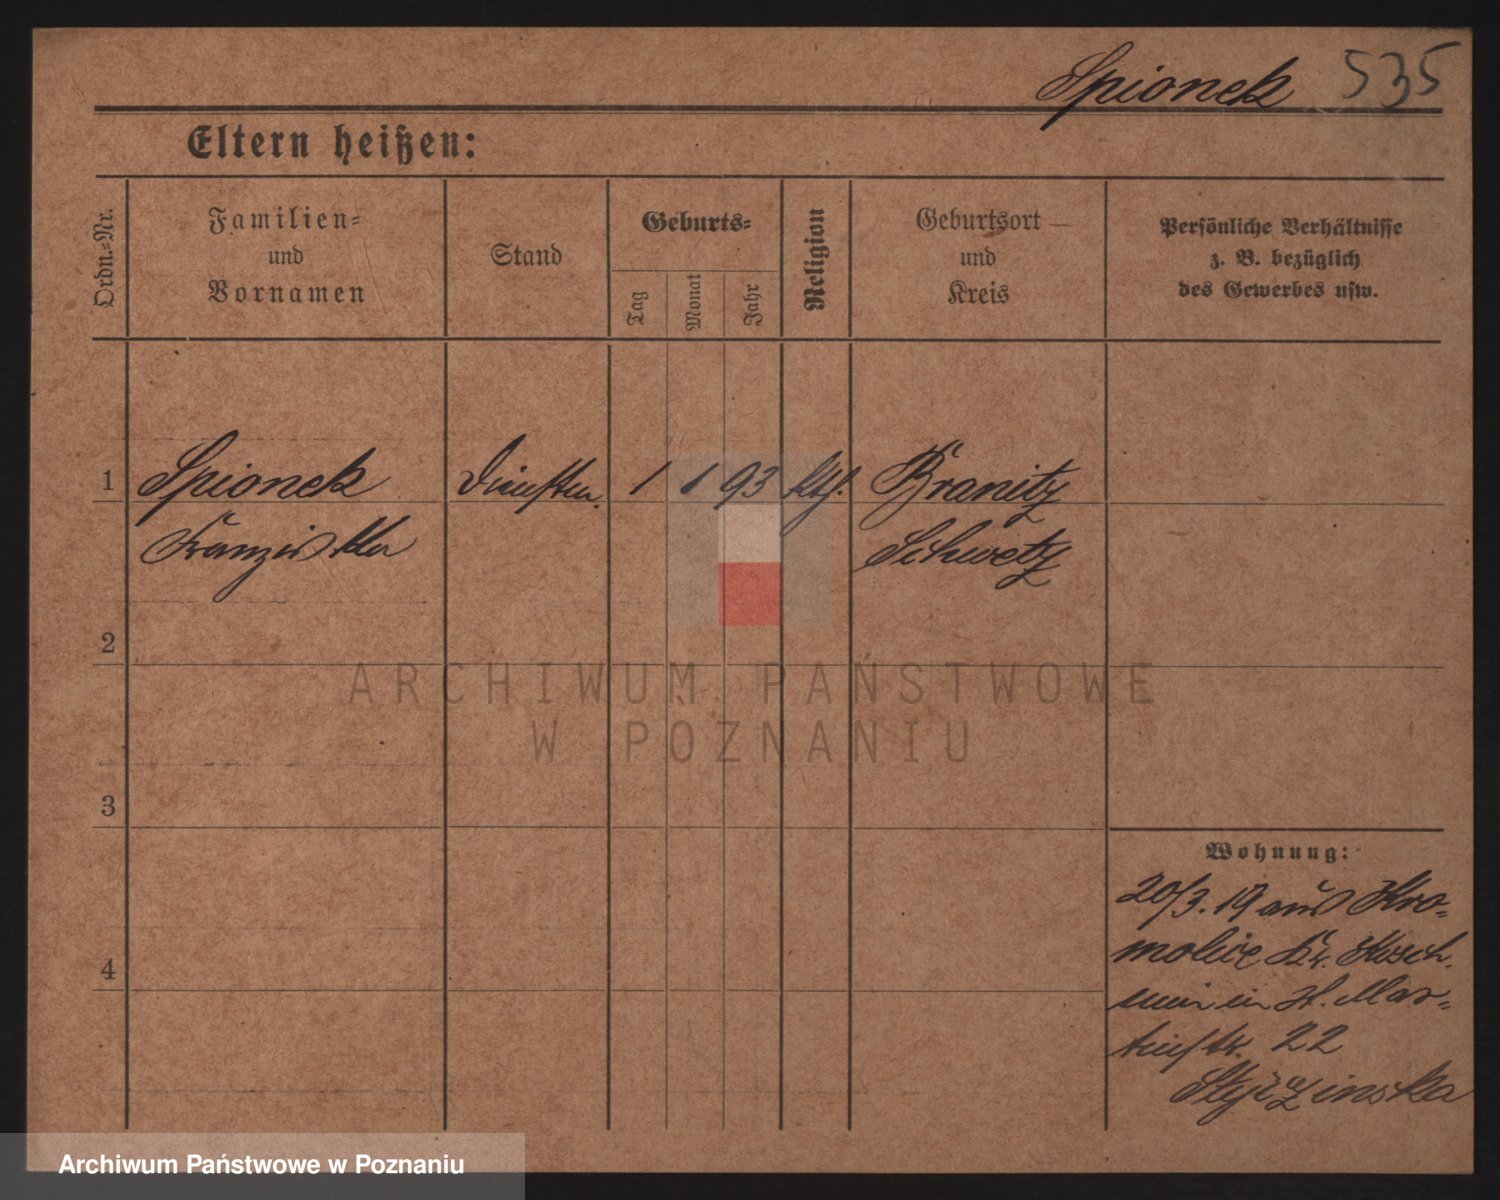 Spionek 535
Eltern heißen:
Ordn.-Nr.
Familien-
und
Vornamen
Stand
Geburts-
Tag
Monat
Jahr
Religion
Geburtsort
und
Kreis
Persönliche Verhältnisse
z. B. bezüglich
des Gewerbes usw.
1 Spionek 1 1 93 kth. Branitz
Franziska Schwetz
2
3
4
ARCHIWUM PAŃSTWOWE
W POZNANIU
Wohnung:
20/3. 19 aus Kro-
molice Kr. Kosch-
min in St. Mar-
tinstr. 22
Archiwum Państwowe w Poznaniu